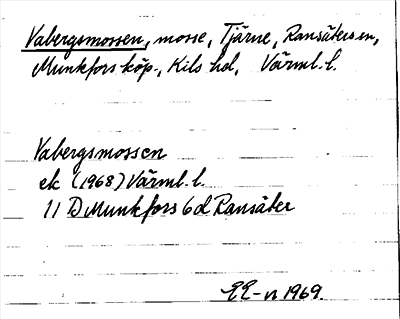 Vabergsmossen, mosse, Tjärne, Ransäters sn,
Munkfors köp., Kils hd, Värml. l.
Vabergsmossen
ek (1968) Värml. l.
11 D Munkfors 6d Ransäter
EE-n 1969.